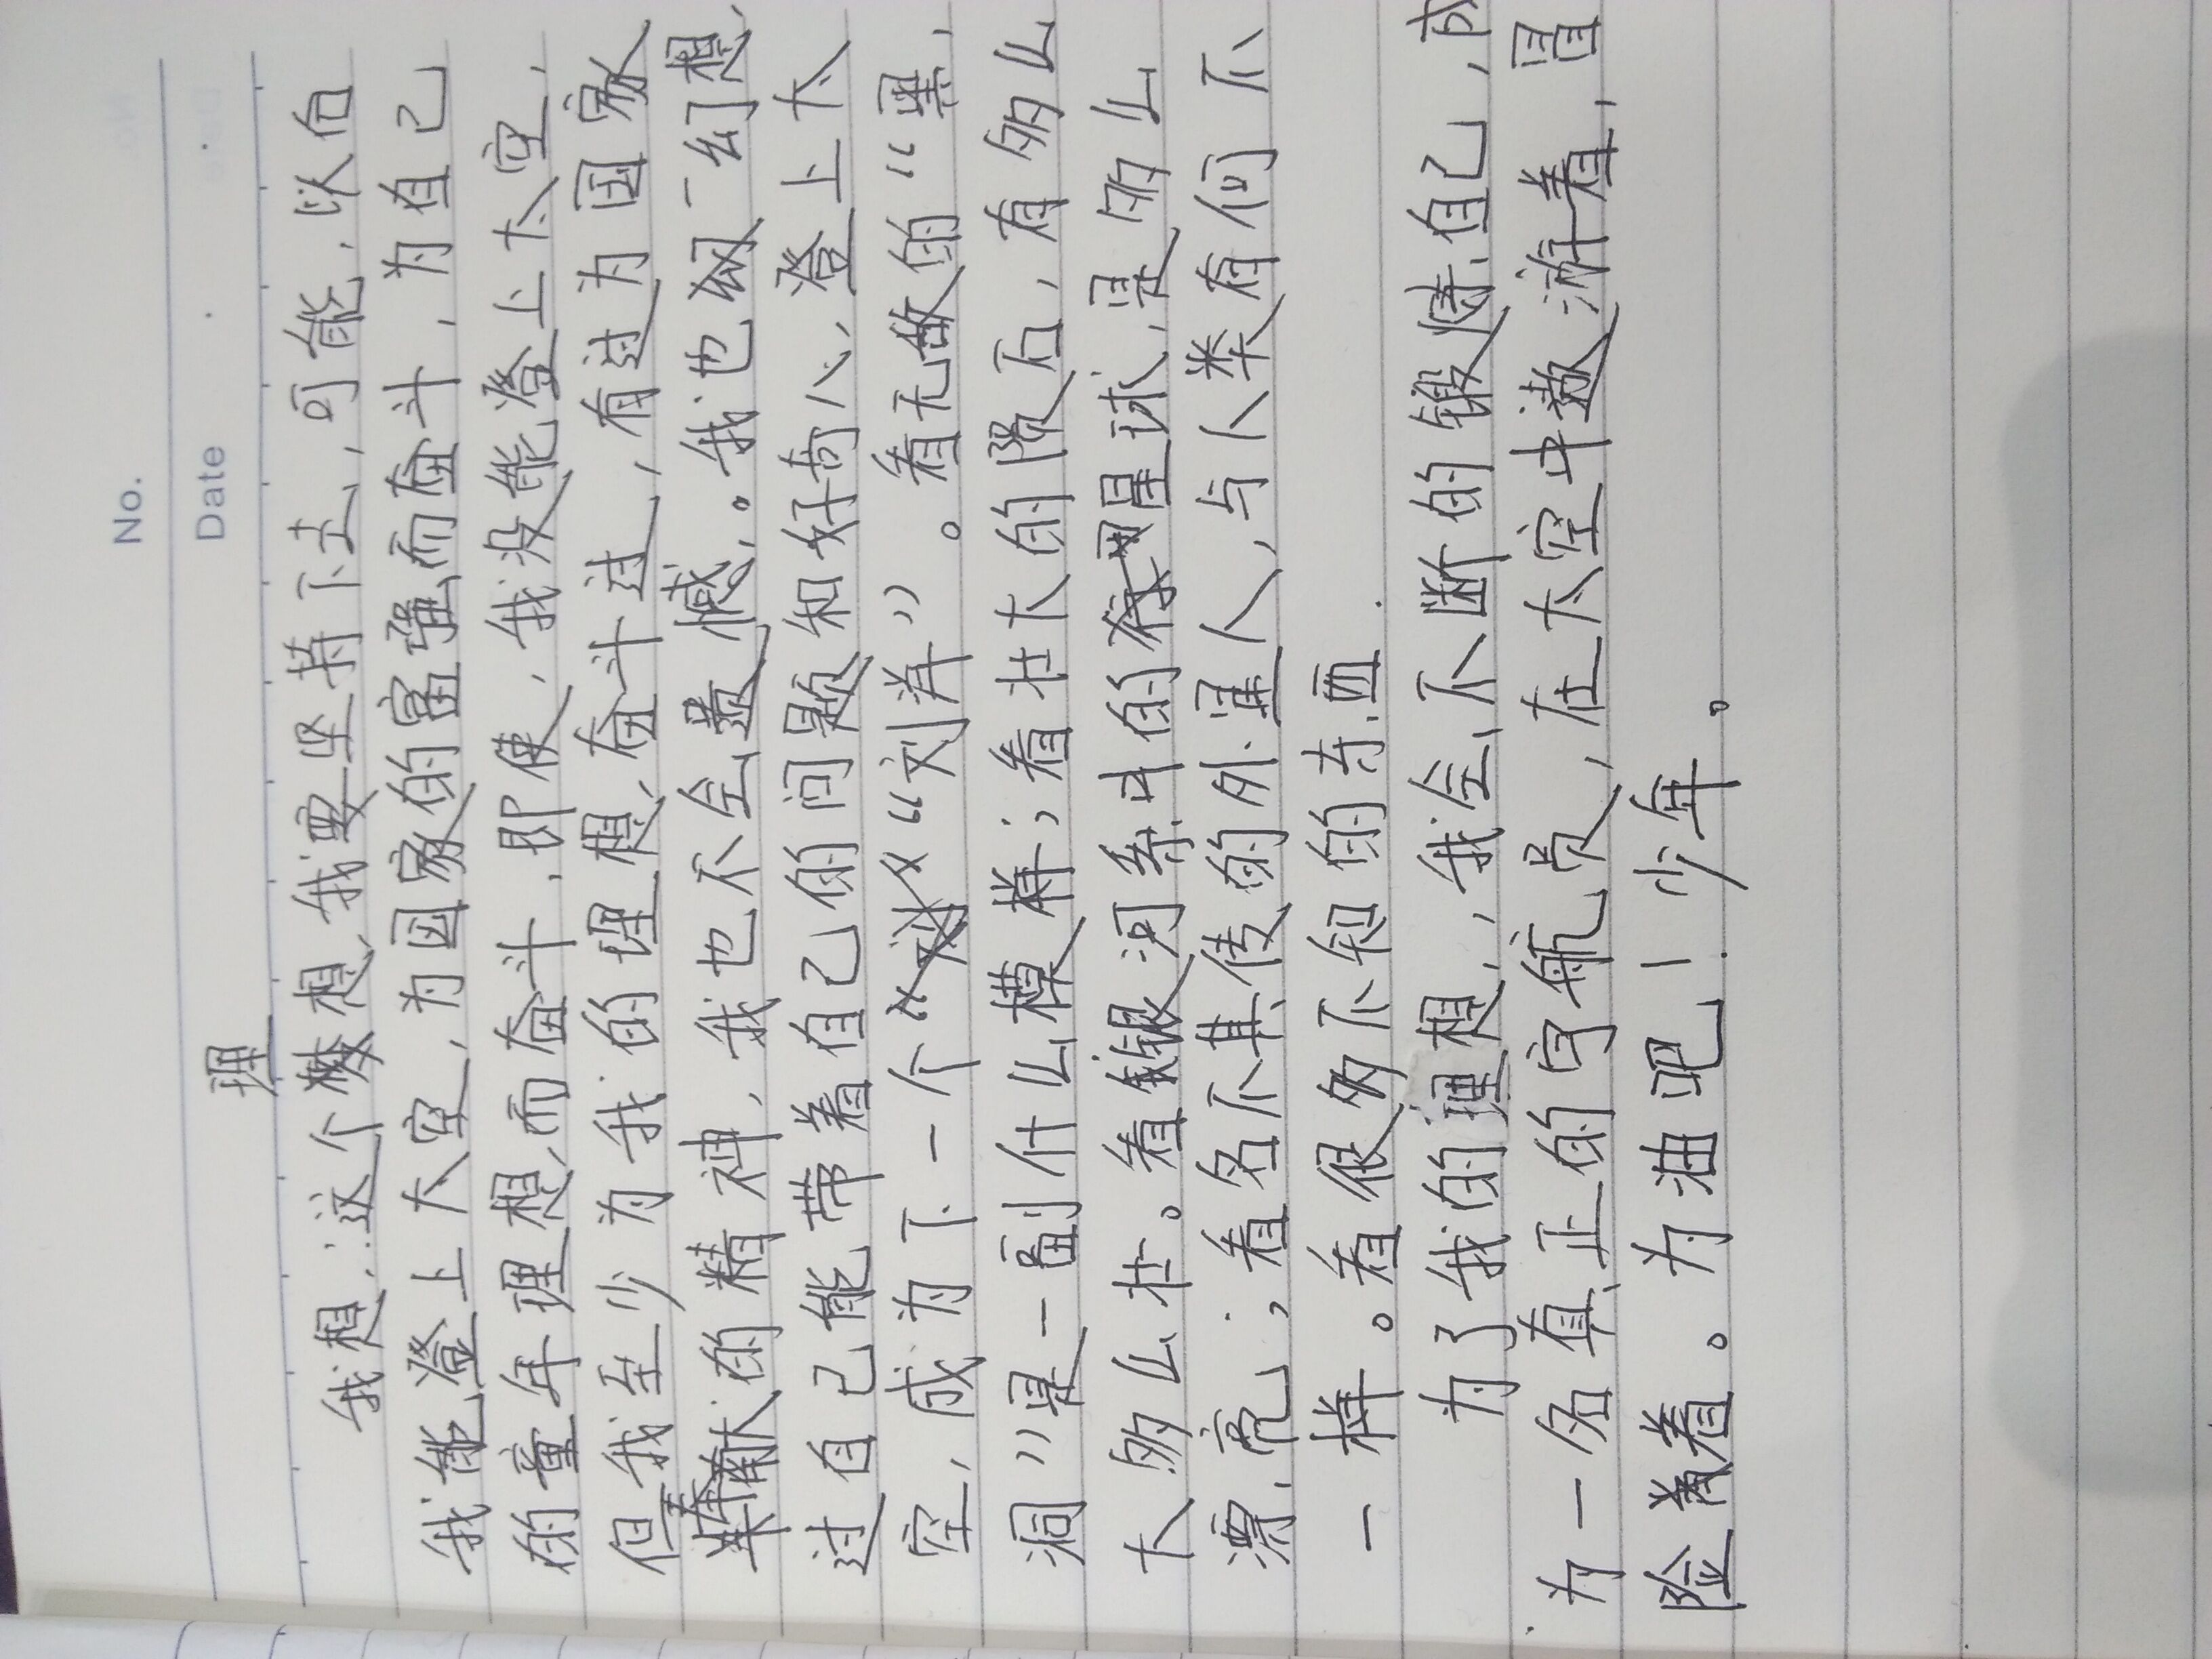 No.
Date
理
我想:这个想,我要坚持下去,可能,以后
我能登上太空,为国家的富强而奋斗,为自己
的童年理想而奋斗,即使,我没能登上太空,
但我至少为我的理想,奋斗过,有过为国家
奉献的精神,我也不会遗憾。我也幻想
过自己能带着自己的问题和好奇心,登上太
空,成为下一个“刘洋”。看无敌的“黑
洞”是一副什么模样;看壮大的陨石,有多么
大多么壮。看银河系中的星球,是多么
漂亮;看名不其传的外星人,与人类有何不
一样。看很多不知的东西.
为了我的理想,我会不断的锻炼自己,成
为一名真正的宇航员,在太空中遨游着,冒
险着。为油吧!少年。